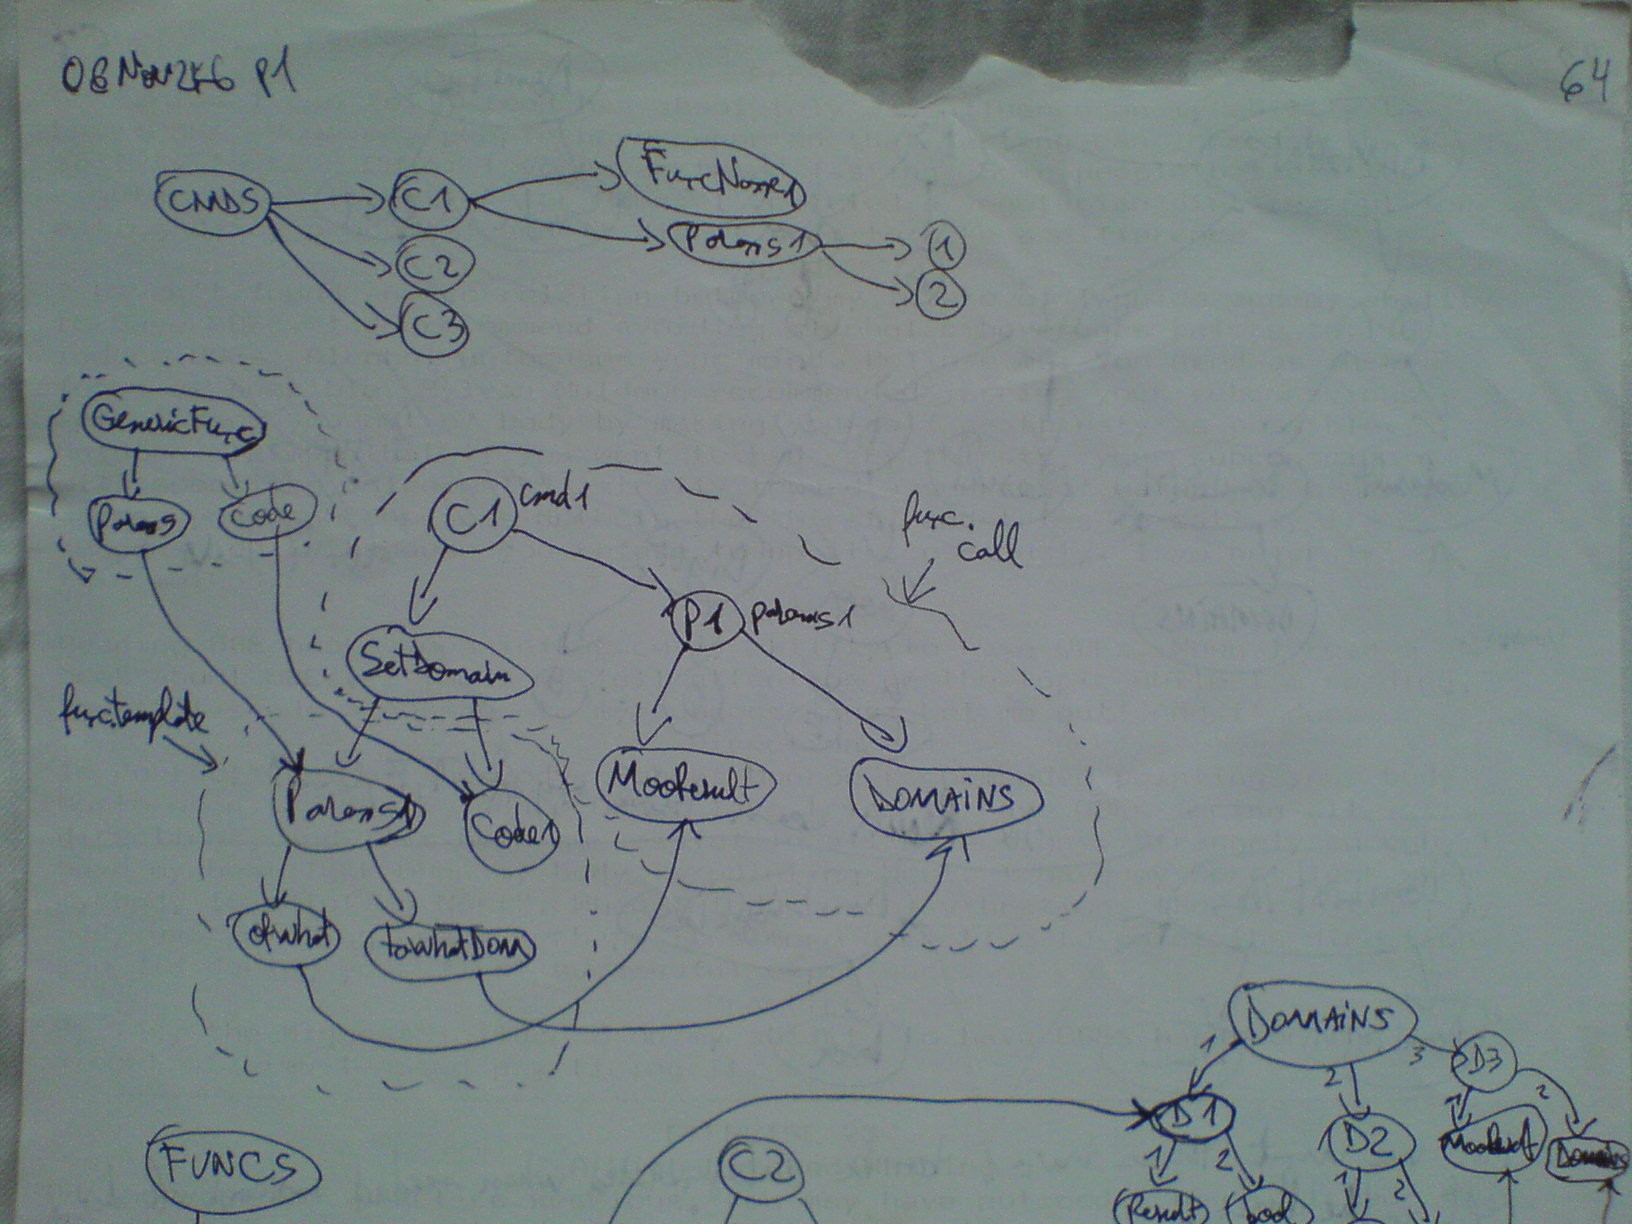 06Nov2k6 P1
64
CMDS
C1
FuncName1
Params1
1
C2
2
C3
GenericFunc
Params
Code
C1
cmd1
func.
call
P1
params1
SetDomain
func.template
Params1
Code1
MooResult
DOMAiNS
ofwhat
towhatDom
DOMAiNS
1
2
3
D3
1
2
D1
D2
MooResult
Domains
1
2
1
2
Result
bool
FUNCS
C2